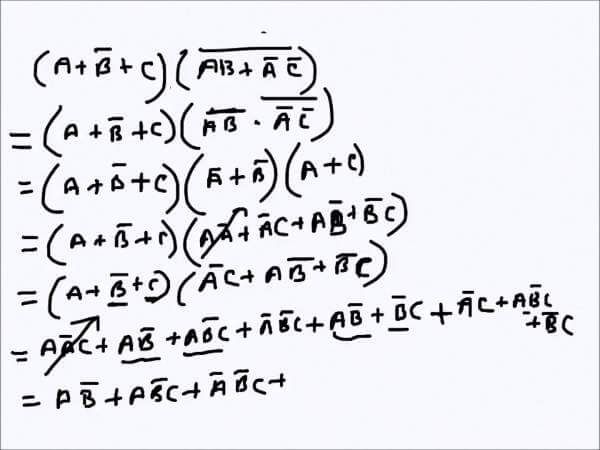 (A + B̅ + C) (A̅B̅ ̅+̅ ̅A̅̅ ̅C̅̅)
= (A + B̅ + C) (A̅B̅ · A̅̅ ̅C̅̅)
= (A + B̅ + C) (A̅ + B̅) (A + C)
= (A + B̅ + C) (AA̅ + A̅C + AB̅ + B̅C)
= (A + B̅ + C) (A̅C + AB̅ + B̅C)
= AA̅C + AB̅ + AB̅C + A̅B̅C + AB̅ + B̅C + A̅C + AB̅C
+ B̅C
= AB̅ + AB̅C + A̅B̅C +